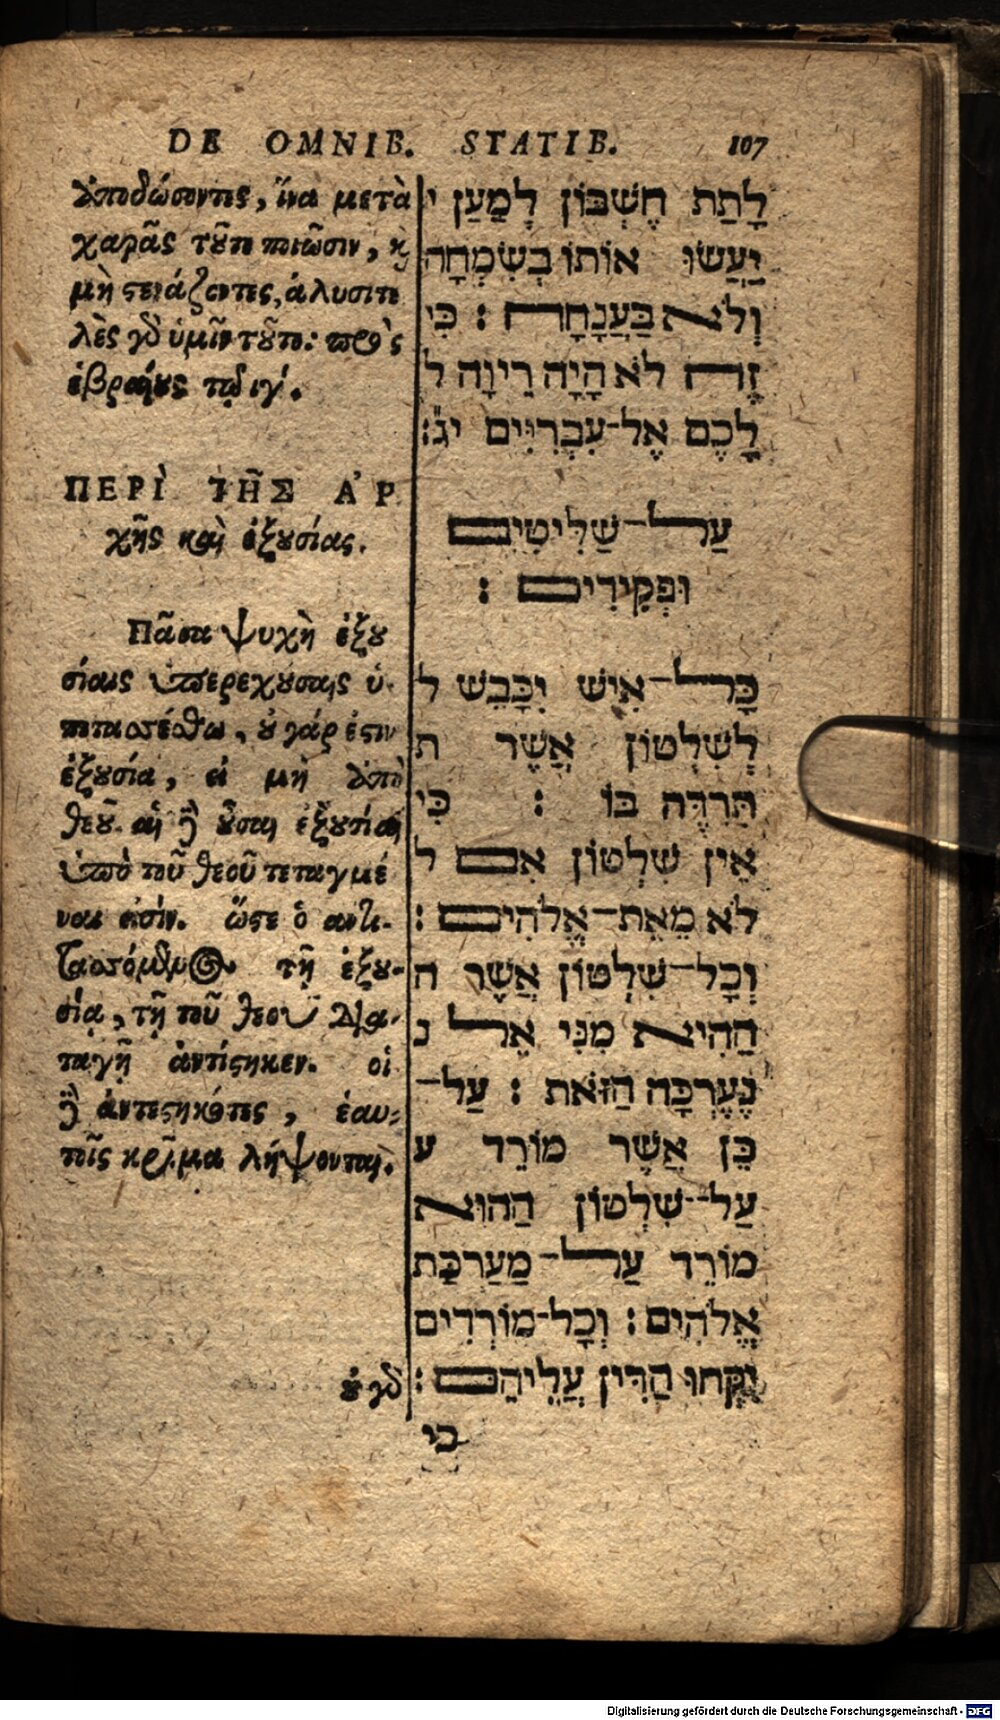 DE OMNIB. STATIB. 107
ἀποδώσοντες, ἵνα μετὰ
χαρᾶς τοῦτο ποιῶσιν, κ̀
μὴ στενάζοντες, ἀλυσιτε
λὲς γὸ ὑμῖν τοῦτο: πρὸς
ἑβραίους τῷ ιγʹ.
ΠΕΡῚ ΤΗ͂Σ ἈΡ
χῆς καὶ ἐξουσίας.
Πᾶσα ψυχὴ ἐξου
σίαις ὑπερεχούσαις ὑ-
ποτασσέσθω, οὐ γάρ ἐστιν
ἐξουσία, εἰ μὴ ἀπὸ
θεοῦ. αἱ δὲ οὖσαι ἐξουσίαι
ὑπὸ τοῦ θεοῦ τεταγμέ
ναι εἰσίν. ὥστε ὁ ἀντι-
τασσόμενος τῇ ἐξου-
σίᾳ, τῇ τοῦ θεοῦ δια-
ταγῇ ἀντίστηκεν. οἱ
δὲ ἀντεστηκότες, ἑαυ-
τοῖς κρῖμα λήψονται.
οὐ γὸ
לָתַת חֶשְׁבּוֹן לְמַעַן י
יַעֲשׂוּ אוֹתוֹ בְּשִׂמְחָה
וְלֹא בַּעֲנָחָה : כִּי
זֶה לֹא הָיָה רֵיוָה ל
לָכֶם אֶל־עִבְרִיִּים יג׃
עַל־שַׁלִּיטִים
וּפְקִידִים :
כָּל־אִישׁ יִכָּבֵשׁ ל
לְשִׁלְטוֹן אֲשֶׁר ת
תִּרְדֶּה בּוֹ : כִּי
אֵין שִׁלְטוֹן אִם ל
לֹא מֵאֵת־אֱלֹהִים :
וְכָל־שִׁלְטוֹן אֲשֶׁר ה
הַהִיא מִנִּי אֵל נ
נֶעֶרְכָּה הַזֹּאת : עַל־
כֵּן אֲשֶׁר מוֹרֵד ע
עַל־שִׁלְטוֹן הַהוּא
מוֹרֵד עַל־מַעַרְכַּת
אֱלֹהִים : וְכָל־מוֹרְדִים
יִקְחוּ הַדִּין עֲלֵיהֶם :
כי
Digitalisierung gefördert durch die Deutsche Forschungsgemeinschaft - DFG